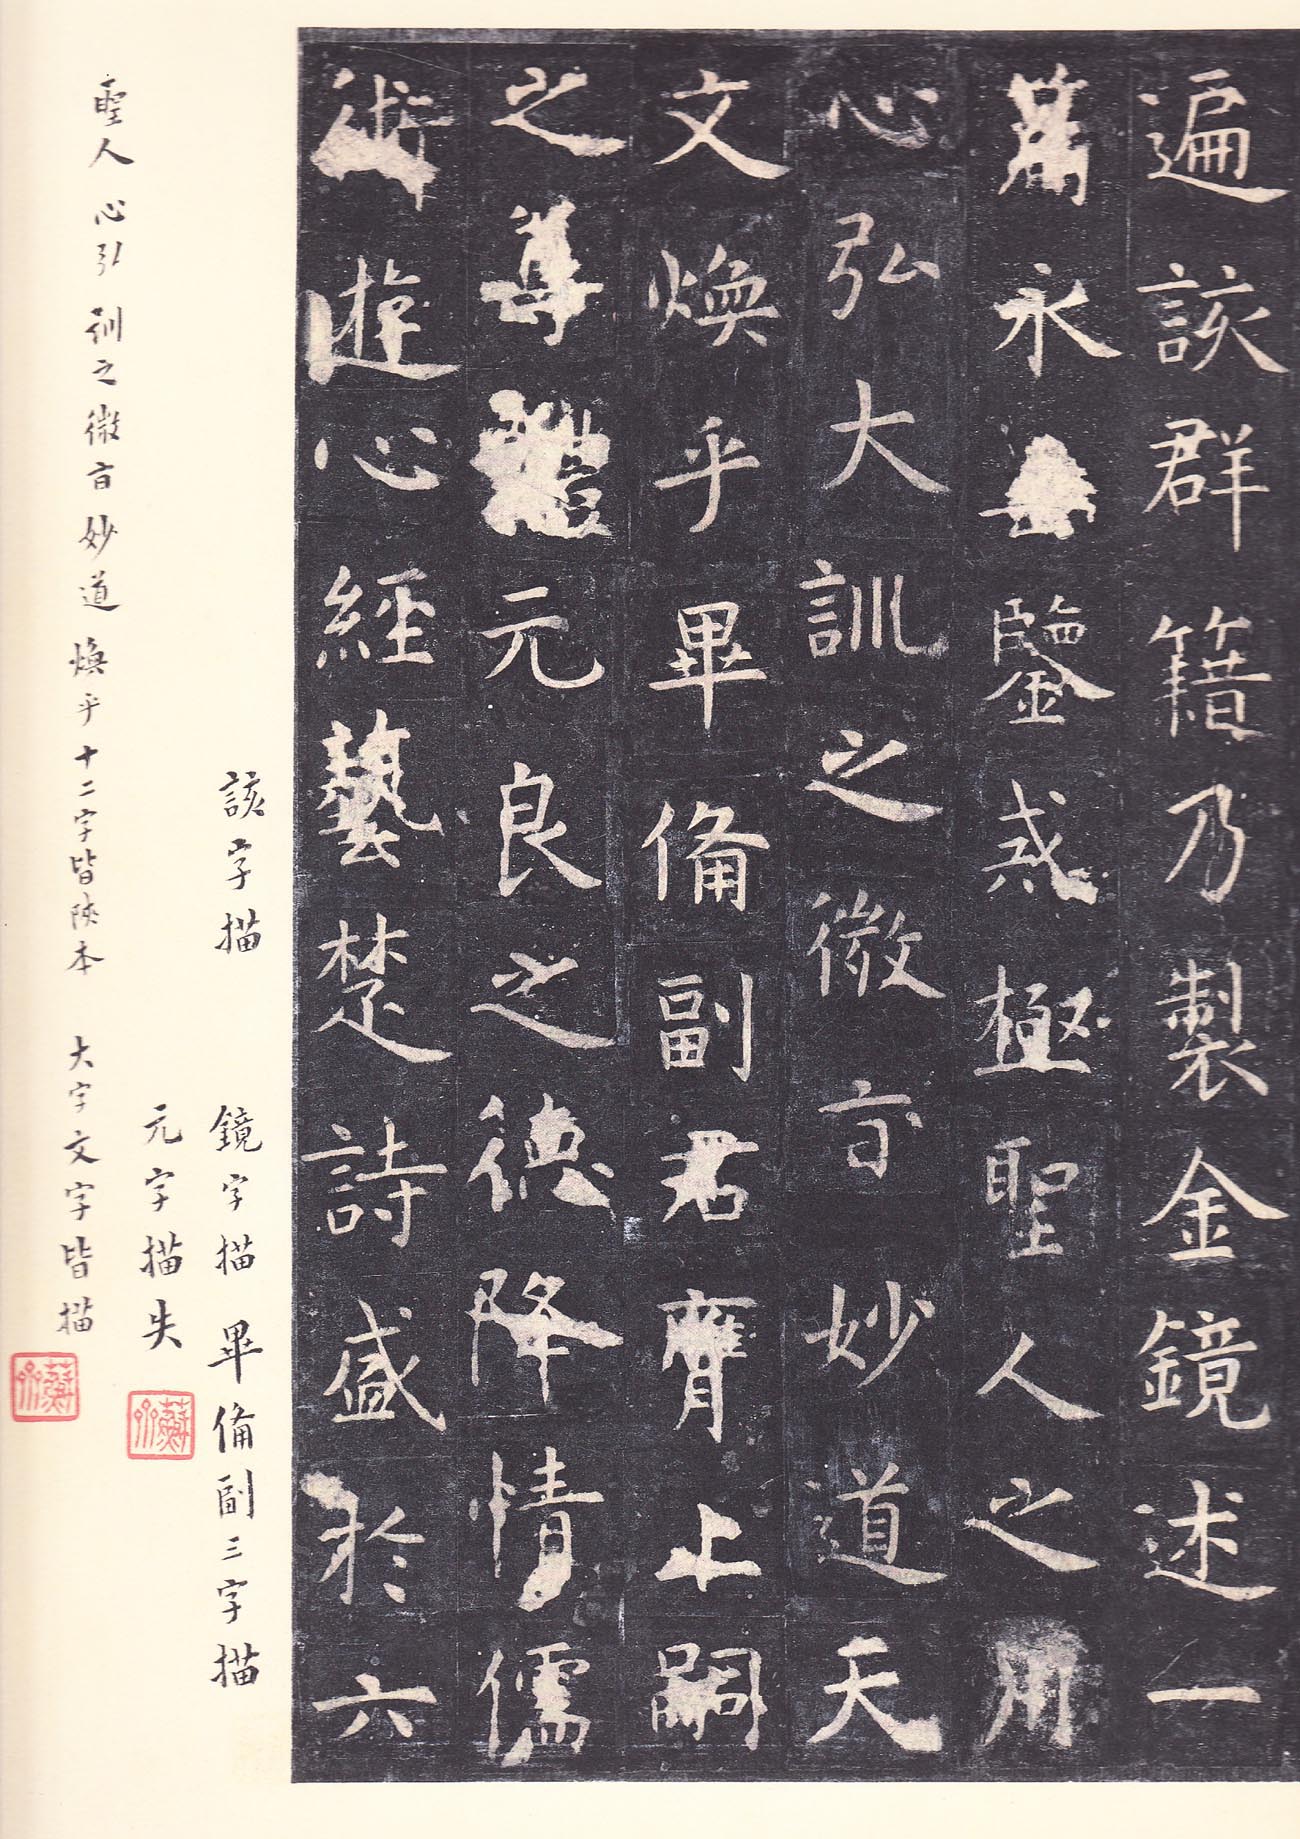 遍該群籍乃製金鏡述一
篇永垂鑒戒極聖人之用
心弘大訓之微旨妙道天
文煥乎畢備副君膺上嗣
之尊體元良之德降情儒
術遊心經藝楚詩盛於六
該字描 鏡字描 畢俻副三字描
元字描失
聖人 心弘 訓之微旨妙道 煥乎十二字皆陝本 大字文字皆描